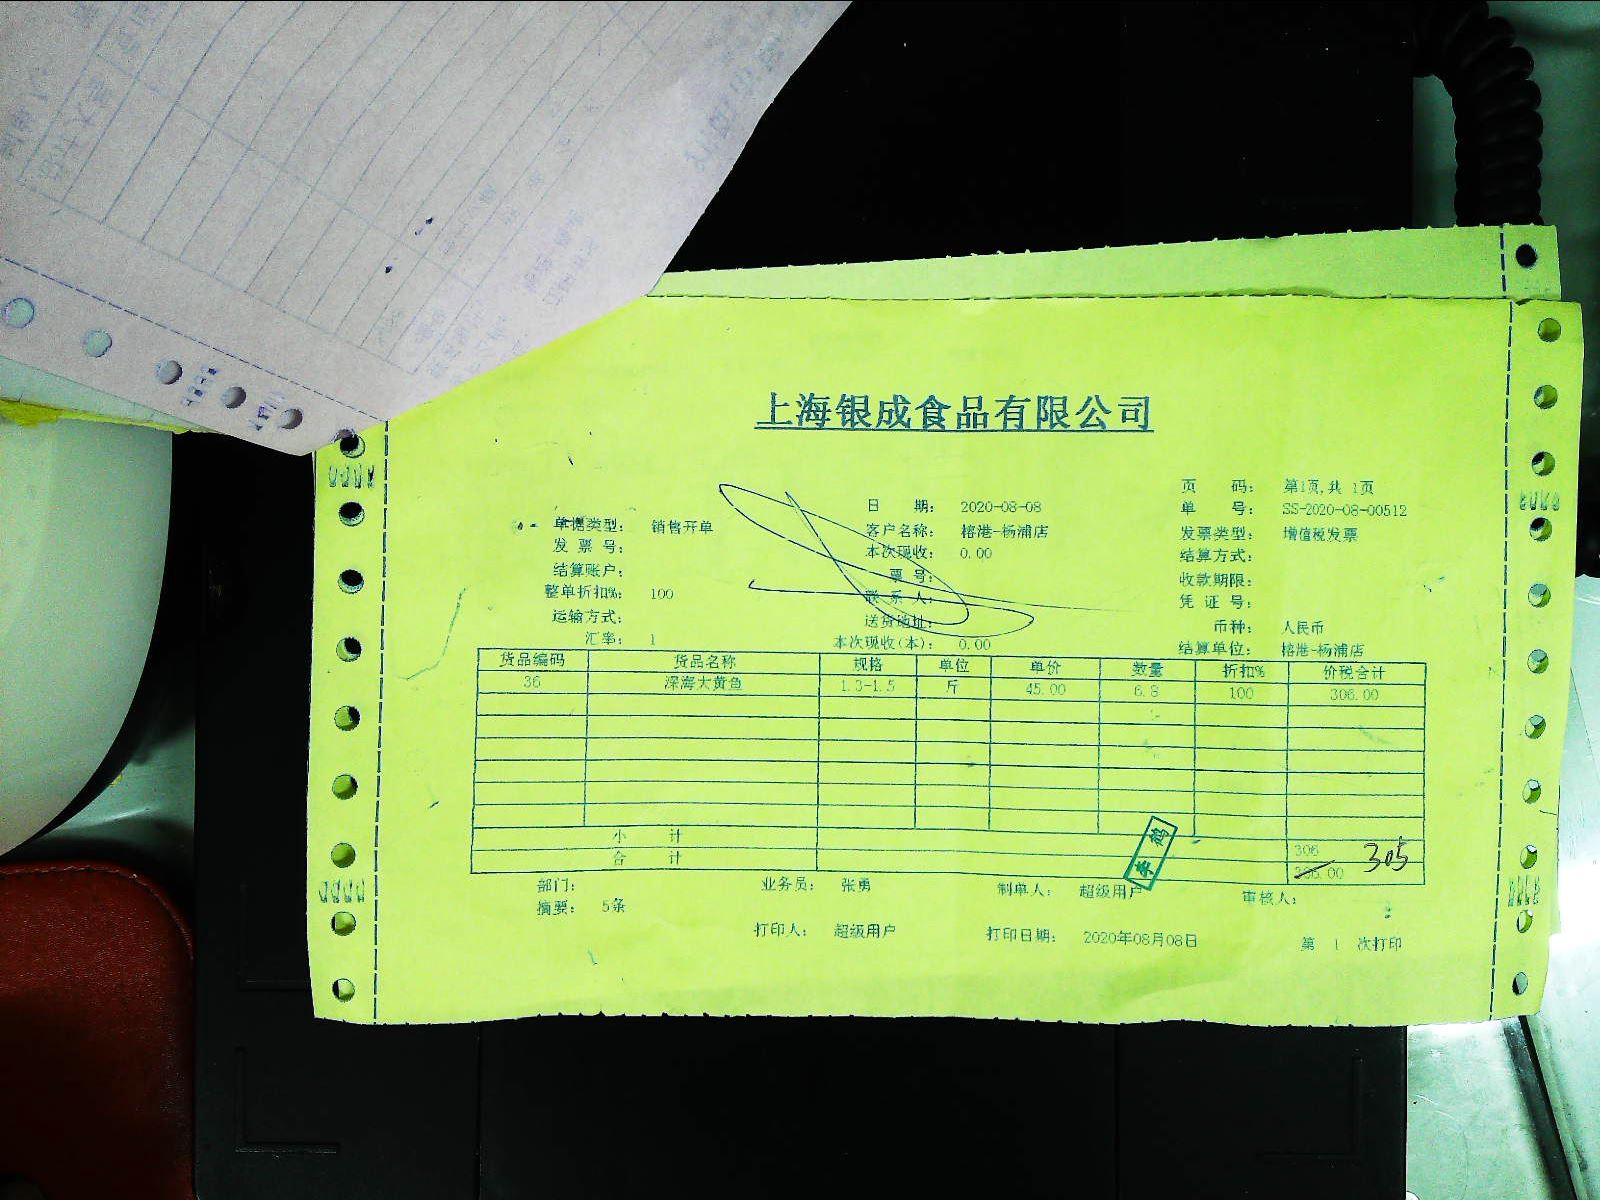 上海银成食品有限公司
页 码： 第1页,共 1页
日 期： 2020-08-08 单 号： SS-2020-08-00512
单据类型： 销售开单 客户名称： 榕港-杨浦店 发票类型： 增值税发票
发 票 号： 本次现收： 0.00 结算方式：
结算账户： 票 号： 收款期限：
整单折扣%： 100 联 系 人： 凭 证 号：
运输方式： 送货地址： 币种： 人民币
汇率： 1 本次现收(本)： 0.00 结算单位： 榕港-杨浦店
货品编码 货品名称 规格 单位 单价 数量 折扣% 价税合计
36 深海大黄鱼 1.3-1.5 斤 45.00 6.8 100 306.00
小 计 306
合 计 306.00 305
部门： 业务员： 张勇 制单人： 超级用户 审核人：
摘要： 5条
打印人： 超级用户 打印日期： 2020年08月08日 第 1 次打印